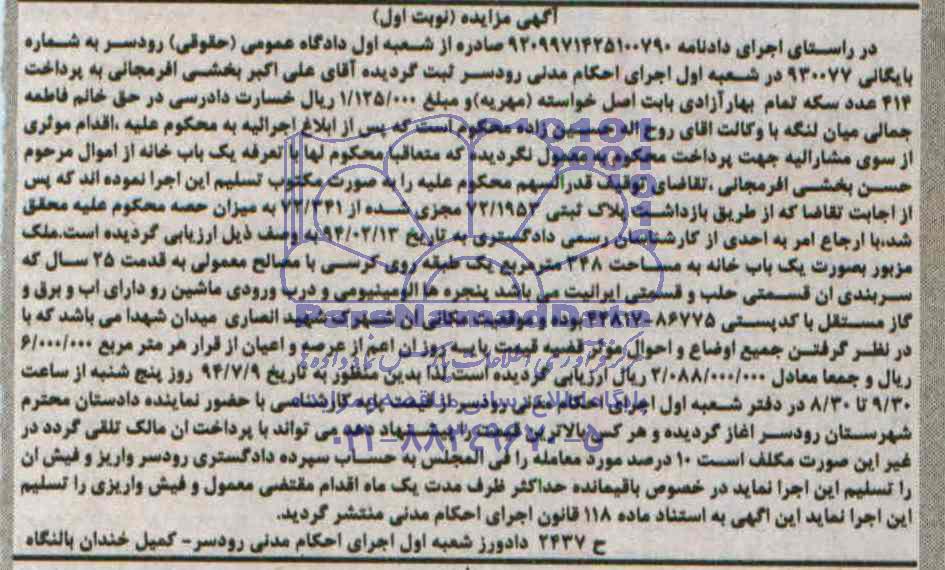 آگهی مزایده (نوبت اول)
در راستای اجرای دادنامه ۹۲۰۹۹۷۱۴۲۵۱۰۰۷۹۰ صادره از شعبه اول دادگاه عمومی (حقوقی) رودسر به شماره
بایگانی ۹۳۰۰۷۷ در شعبه اول اجرای احکام مدنی رودسر ثبت گردیده آقای علی اکبر بخشی افرمجانی به پرداخت
۴۱۴ عدد سکه تمام بهارآزادی بابت اصل خواسته (مهریه)و مبلغ ۱/۱۲۵/۰۰۰ ریال خسارت دادرسی در حق خانم فاطمه
جمالی میان لنگه با وکالت اقای روح اله حسین زاده محکوم است که پس از ابلاغ اجرائیه به محکوم علیه ،اقدام موثری
از سوی مشارالیه جهت پرداخت محکوم به معمول نگردیده که متعاقبا محکوم لها با تعرفه یک باب خانه از اموال مرحوم
حسن بخشی افرمجانی ،تقاضای توقیف قدرالسهم محکوم علیه را به صورت مکتوب تسلیم این اجرا نموده اند که پس
از اجابت تقاضا که از طریق بازداشت پلاک ثبتی ۷۲/۱۹۵۲ مجزی شده از ۷۲/۳۴۱ به میزان حصه محکوم علیه محقق
شد،با ارجاع امر به احدی از کارشناسان رسمی دادگستری به تاریخ ۹۴/۰۲/۱۳ به وصف ذیل ارزیابی گردیده است.ملک
مزبور بصورت یک باب خانه به مساحت ۳۴۸ مترمربع یک طبقه روی کرسی با مصالح معمولی به قدمت ۲۵ سال که
سربندی ان قسمتی حلب و قسمتی ایرانیت می باشد پنجره ها الومینیومی و درب ورودی ماشین رو دارای اب و برق و
گاز مستقل با کدپستی ۸۶۷۷۵-۴۴۸۱۷ بوده و موقعیت مکانی ان شهرک شهید انصاری میدان شهدا می باشد که با
در نظر گرفتن جمیع اوضاع و احوال موثر قضیه قیمت پایه روز ان اعم از عرصه و اعیان از قرار هر متر مربع ۶/۰۰۰/۰۰۰
ریال و جمعا معادل ۲/۰۸۸/۰۰۰/۰۰۰ ریال ارزیابی گردیده است.لذا بدین منظور به تاریخ ۹۴/۷/۹ روز پنج شنبه از ساعت
۸/۳۰ تا ۹/۳۰ در دفتر شعبه اول اجرای احکام مدنی رودسر از قیمت پایه کارشناسی با حضور نماینده دادستان محترم
شهرستان رودسر اغاز گردیده و هر کس بالاترین قیمت را پیشنهاد دهد می تواند با پرداخت ان مالک تلقی گردد در
غیر این صورت مکلف است ۱۰ درصد مورد معامله را فی المجلس به حساب سپرده دادگستری رودسر واریز و فیش ان
را تسلیم این اجرا نماید در خصوص باقیمانده حداکثر ظرف مدت یک ماه اقدام مقتضی معمول و فیش واریزی را تسلیم
این اجرا نماید این اگهی به استناد ماده ۱۱۸ قانون اجرای احکام مدنی منتشر گردید.
ح ۲۴۳۷ دادورز شعبه اول اجرای احکام مدنی رودسر- کمیل خندان بالنگاه
ParsNamadData
۰۲۱-۸۸۳۴۹۶۷۰-۵